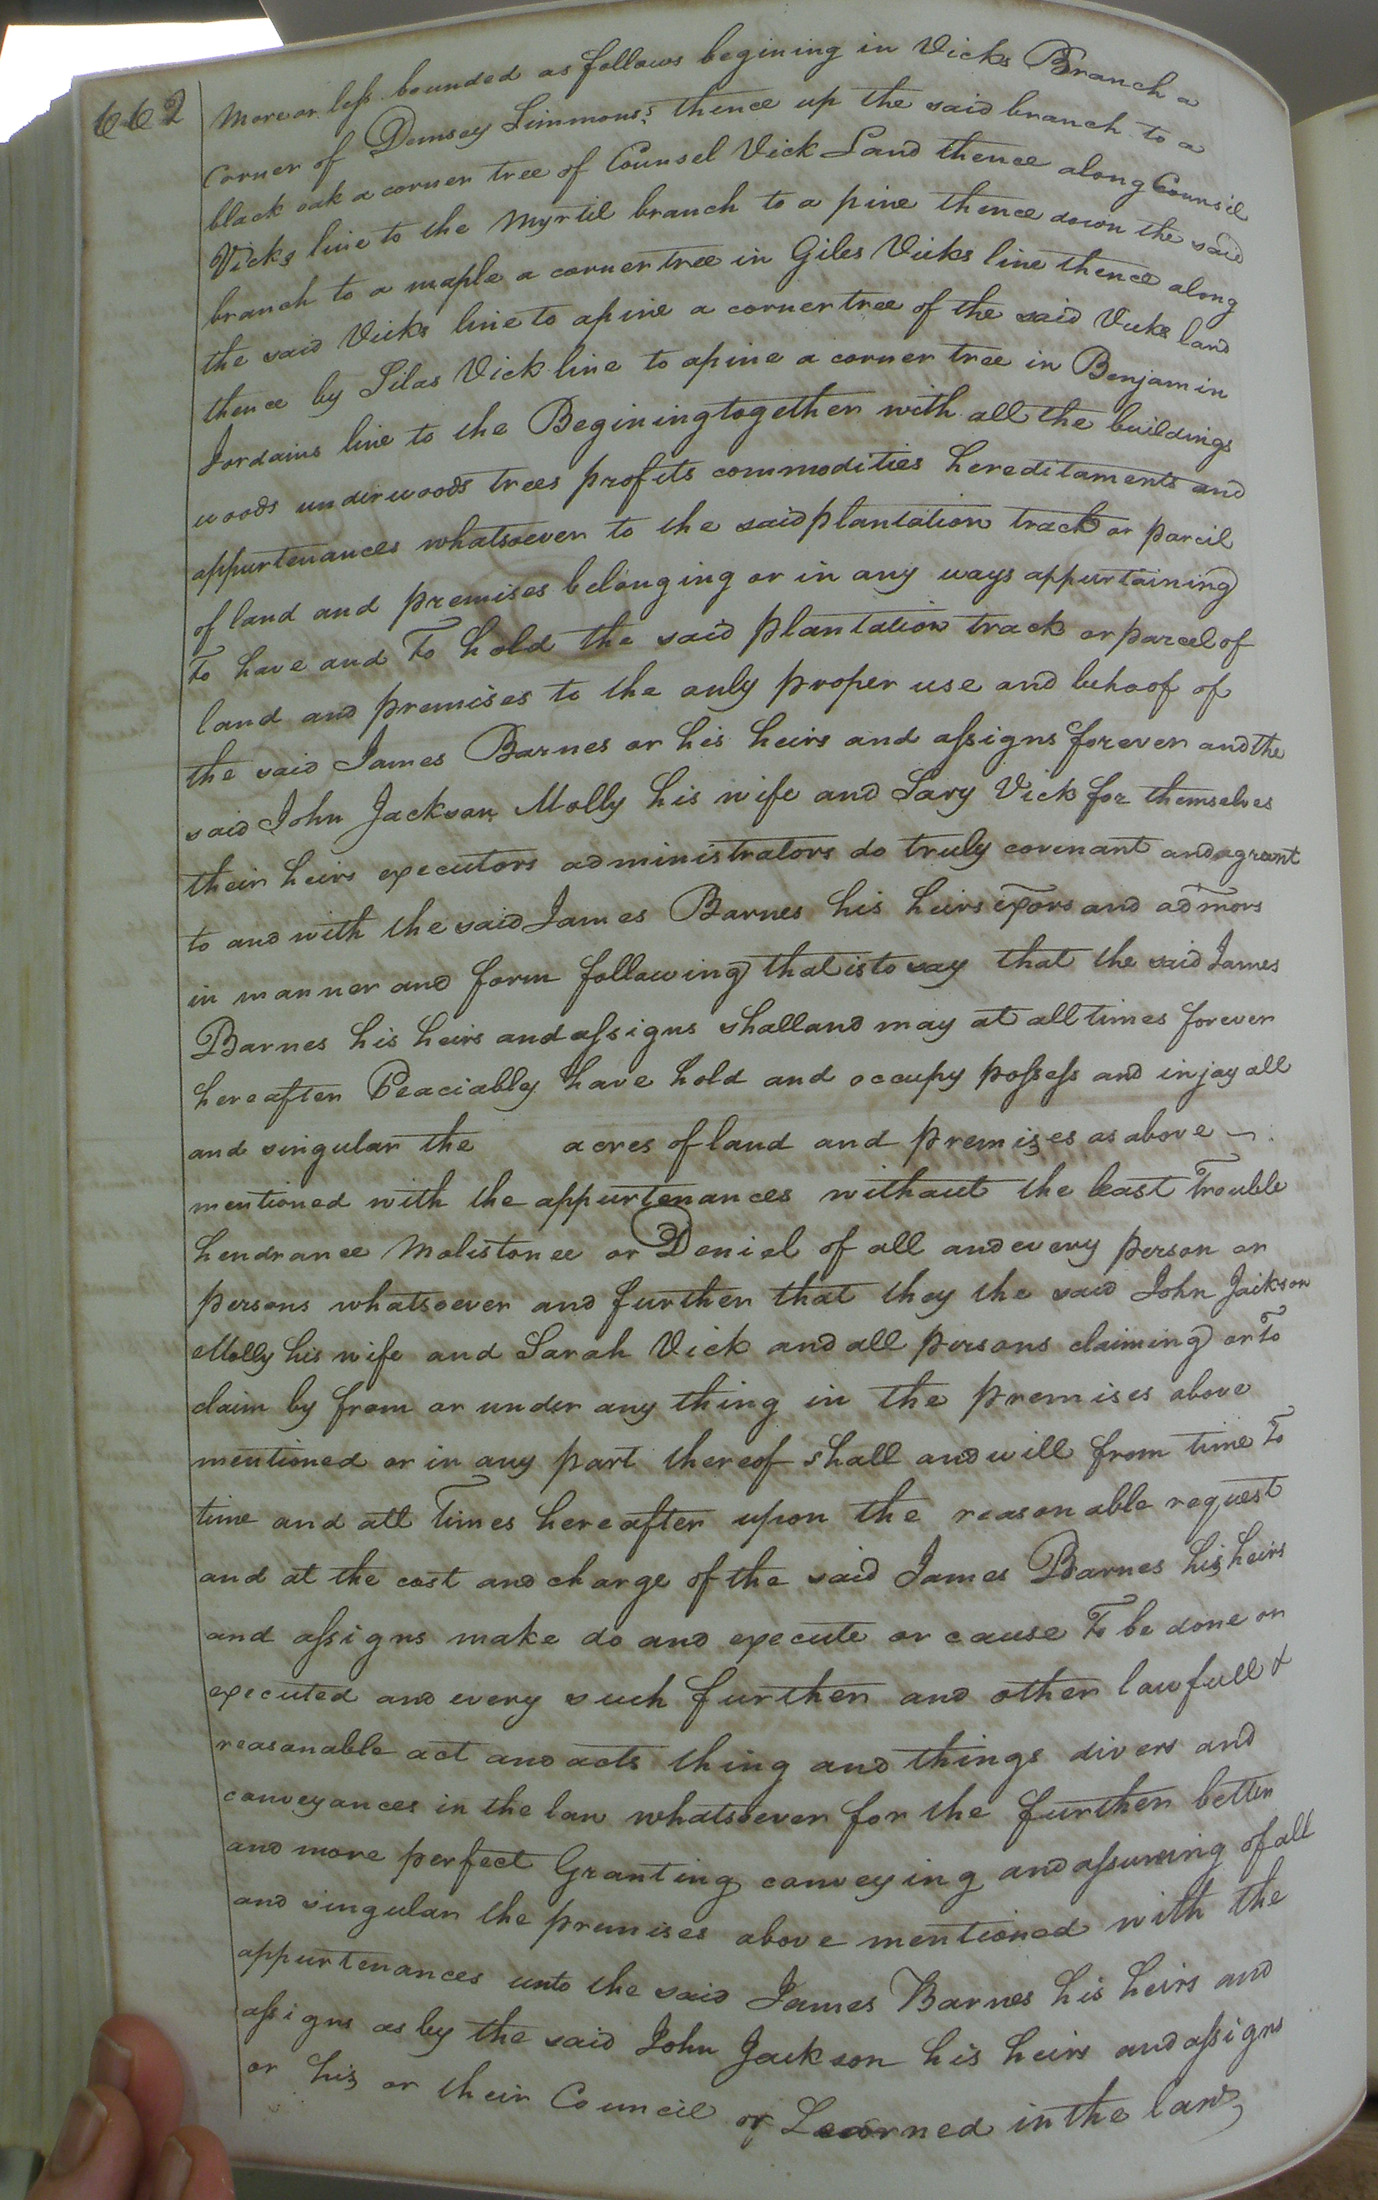 662
More or less bounded as follows begining in Vicks Branch a
Corner of Demsey Simmons's thence up the said branch to a
black oak a corner tree of Counsel Vick Land thence along Counsil
Vicks line to the Myrtil branch to a pine thence down the said
branch to a maple a corner tree in Giles Vicks line thence along
the said Vicks line to a pine a corner tree of the said Vicks land
thence by Silas Vick line to a pine a corner tree in Benjamin
Jordains line to the Begining together with all the buildings
woods underwoods trees profits commodities hereditaments and
appurtenances whatsoever to the said plantation track or parcil
of land and premises belonging or in any ways appurtaining
To have and To hold the said plantation track or parcel of
land and premises to the only proper use and behoof of
the said James Barnes or his heirs and assigns forever and the
said John Jackson Molly his wife and Sary Vick for themselves
their heirs executors administrators do truly covenant and agreent
to and with the said James Barnes his heirs exors and admors
in manner and form following that is to say that the said James
Barnes his heirs and assigns shall and may at all times forever
hereafter Peaciably have hold and occupy possess and injoy all
and singular the acres of land and premises as above
mentioned with the appurtenances without the least Trouble
hendrance Molistonce or Deniel of all and every person or
persons whatsoever and further that they the said John Jackson
Molly his wife and Sarah Vick and all persons claiming or To
claim by from or under any thing in the premises above
mentioned or in any part thereof shall and will from time To
time and att Times hereafter upon the reasonable request
and at the cost and charge of the said James Barnes his heirs
and assigns make do and execute or cause To be done or
executed and every such further and other lawfull &
reasonable act and acts thing and things divers and
conveyances in the law whatsoever for the further better
and more perfect Granting conveying and assurring of all
and singular the premises above mentioned with the
appurtenances unto the said James Barnes his heirs and
assigns as by the said John Jackson his heirs and assigns
or his or their Council or Learned in the law